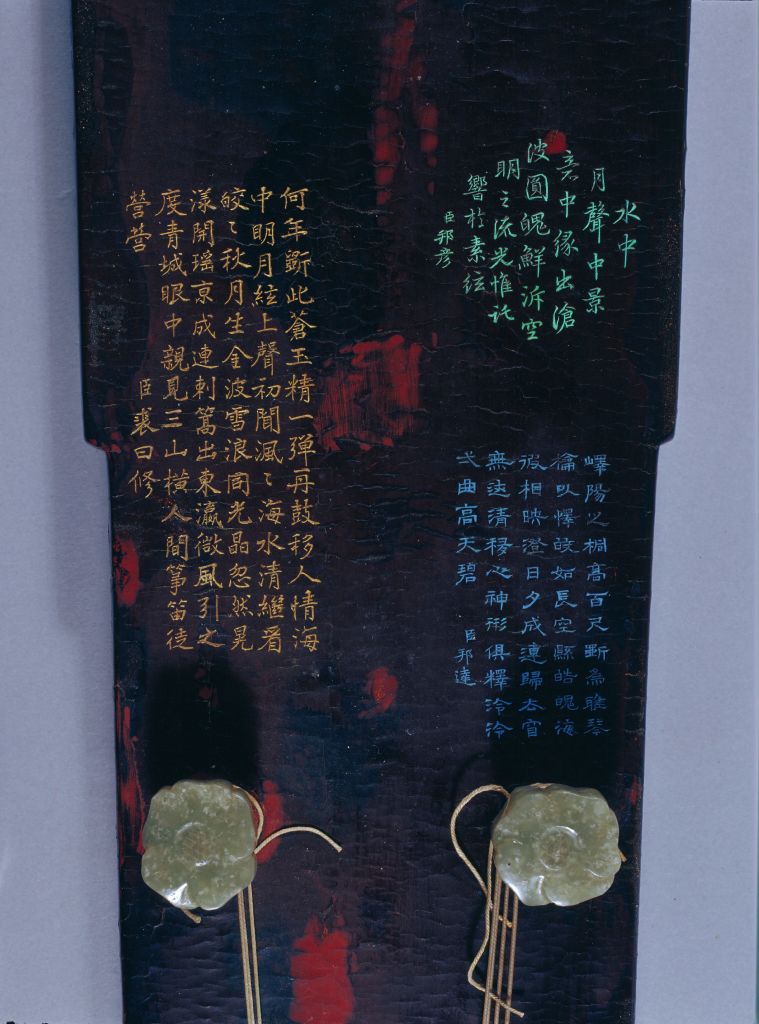 水中
月聲中景
意中緣出滄
波圓魄鮮泝空
明之流光惟託
響於素絃
臣邦彥
嶧陽之桐高百尺斲為雅琴
愉以懌皎如長空縣皓魄海
波相映澄日夕成連歸去窅
無迹清移心神形俱釋泠泠
弌曲高天碧
臣邦達
何年斲此蒼玉精一彈再鼓移人情海
中明月絃上聲初聞渢〻海水清繼看
皎〻秋月生金波雪浪同光晶忽然晃
漾開瑤京成連刺篙出東瀛微風引之
度青城眼中親見三山橫人間箏笛徒
營營
臣裘曰修